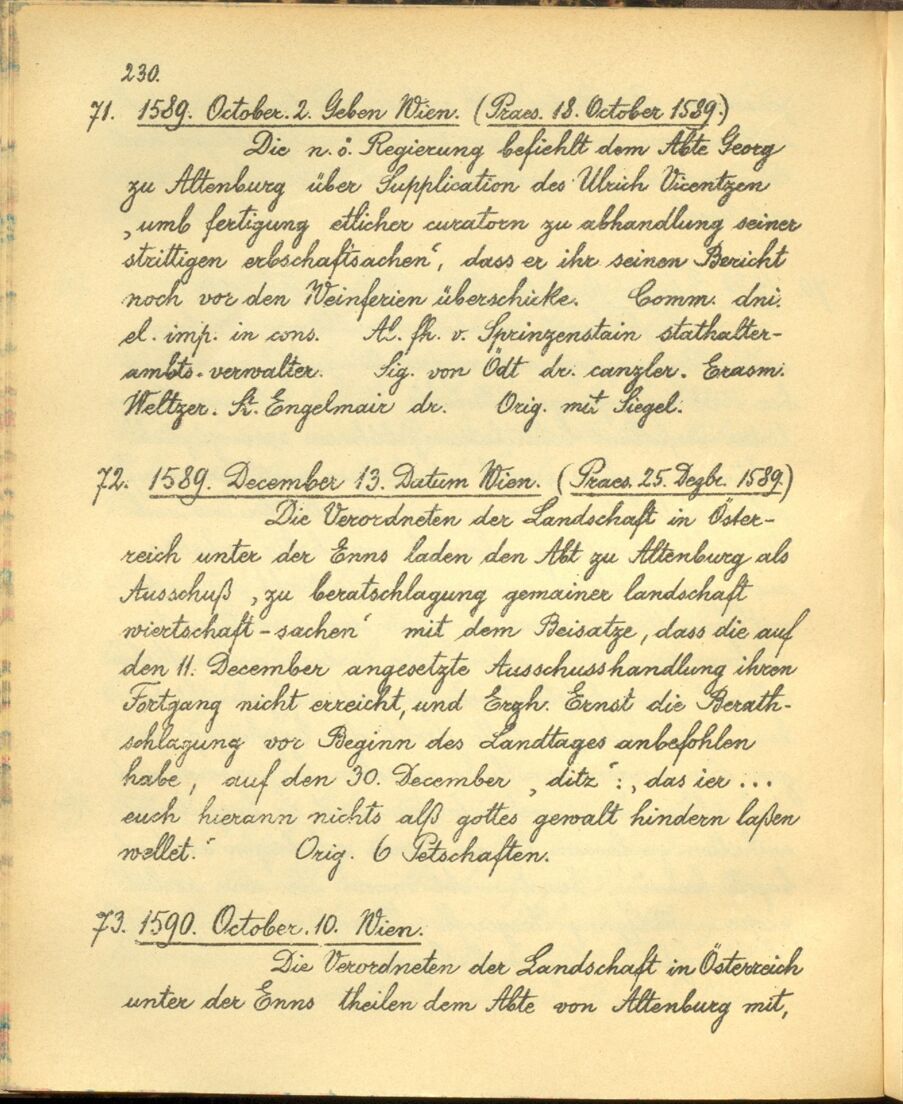 230.
71. 1589. October. 2. Geben Wien. (Praes. 18. October 1589.)
Die n. ö. Regierung befiehlt dem Abte Georg
zu Altenburg über Supplication des Ulrich Vicentzen
„umb fertigung etlicher curatorn zu abhandlung seiner
strittigen erbschaftsachen“, dass er ihr seinen Bericht
noch vor den Weinferien überschicke. Comm. dni.
el. imp. in cons. Al. fh. v. Sprinzenstain stathalter-
ambts-verwalter. Sig. von Ödt dr. canzler. Erasm.
Weltzer. St. Engelmair dr. Orig. mit Siegel.
72. 1589. December 13. Datum Wien. (Praes. 25. Dezbr. 1589.)
Die Verordneten der Landschaft in Öster-
reich unter der Enns laden den Abt zu Altenburg als
Ausschuß „zu beratschlagung gemainer landschaft
wiertschaft-sachen“ mit dem Beisatze, dass die auf
den 11. December angesetzte Ausschusshandlung ihren
Fortgang nicht erreicht, und Erzh. Ernst die Berath-
schlagung vor Beginn des Landtages anbefohlen
habe, auf den 30. December „ditz“: „das ier ...
euch hierann nichts alß gottes gewalt hindern laßen
wellet.“ Orig. 6 Petschaften.
73. 1590. October. 10. Wien.
Die Verordneten der Landschaft in Österreich
unter der Enns theilen dem Abte von Altenburg mit,